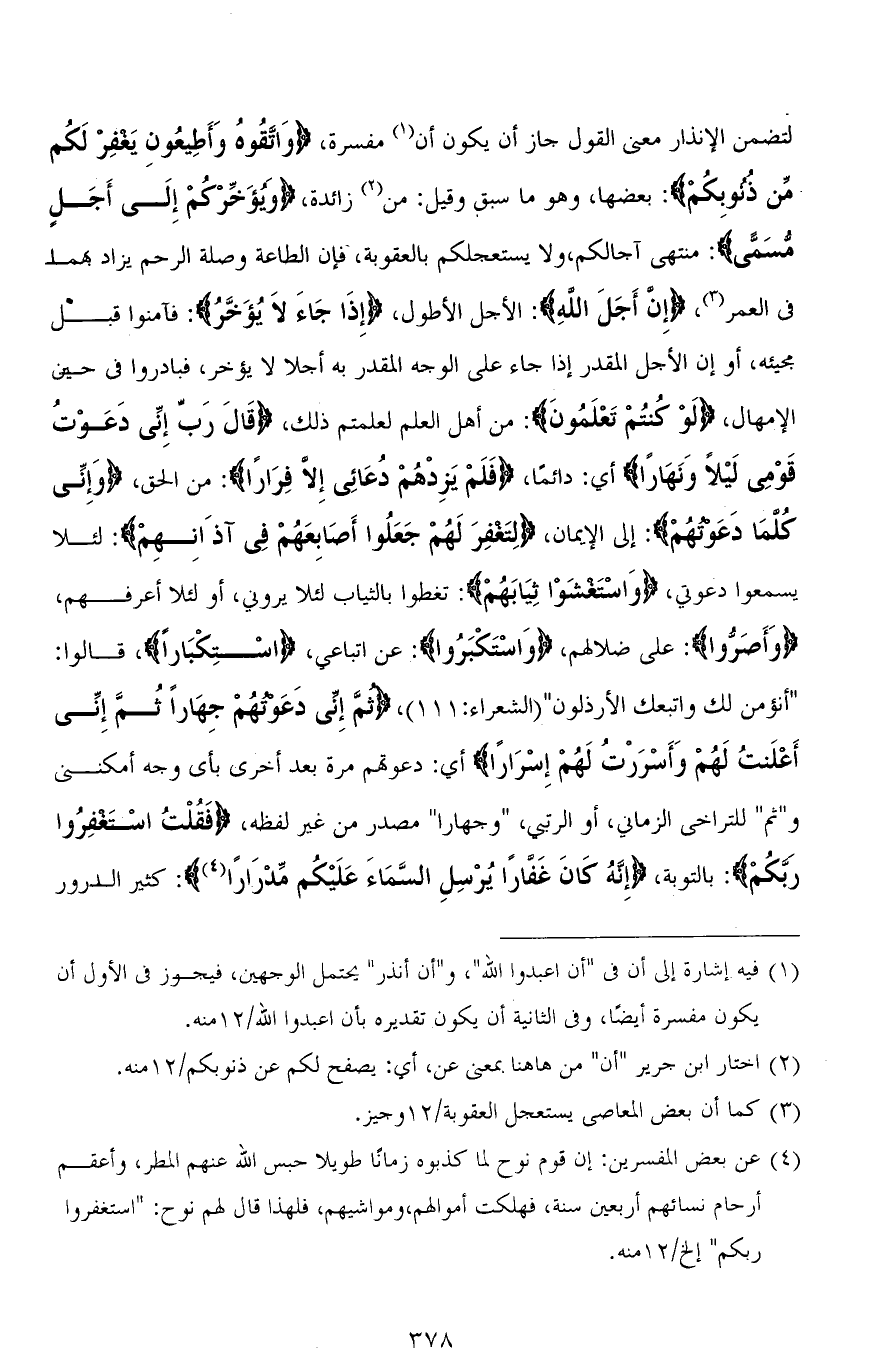 لتضمن الإنذار معنى القول جاز أن يكون أن(١) مفسرة، ﴿وَاتَّقُوهُ وَأَطِيعُونِ يَغْفِرْ لَكُم
مِّن ذُنُوبِكُمْ﴾: بعضها، وهو ما سبق وقيل: من(٢) زائدة، ﴿وَيُؤَخِّرْكُمْ إِلَى أَجَلٍ
مُّسَمًّى﴾: منتهى آجالكم،ولا يستعجلكم بالعقوبة، فإن الطاعة وصلة الرحم يزاد بهما
فى العمر(٣)، ﴿إِنَّ أَجَلَ اللَّهِ﴾: الأجل الأطول، ﴿إِذَا جَاءَ لاَ يُؤَخَّرُ﴾: فآمنوا قبل
مجيئه، أو إن الأجل المقدر إذا جاء على الوجه المقدر به أجلا لا يؤخر، فبادروا فى حين
الإمهال، ﴿لَوْ كُنتُمْ تَعْلَمُونَ﴾: من أهل العلم لعلمتم ذلك، ﴿قَالَ رَبِّ إِنِّى دَعَوْتُ
قَوْمِى لَيْلاً وَنَهَارًا﴾ أي: دائمًا، ﴿فَلَمْ يَزِدْهُمْ دُعَائِى إِلاَّ فِرَارًا﴾: من الحق، ﴿وَإِنِّى
كُلَّمَا دَعَوْتُهُمْ﴾: إلى الإيمان، ﴿لِتَغْفِرَ لَهُمْ جَعَلُوا أَصَابِعَهُمْ فِى آذَانِهِمْ﴾: لئلا
يسمعوا دعوتي، ﴿وَاسْتَغْشَوْا ثِيَابَهُمْ﴾: تغطوا بالثياب لئلا يروني، أو لئلا أعرفهم،
﴿وَأَصَرُّوا﴾: على ضلالهم، ﴿وَاسْتَكْبَرُوا﴾: عن اتباعي، ﴿اسْتِكْبَاراً﴾، قالوا:
"أنؤمن لك واتبعك الأرذلون"(الشعراء:١١١)، ﴿ثُمَّ إِنِّى دَعَوْتُهُمْ جِهَاراً ثُمَّ إِنِّى
أَعْلَنتُ لَهُمْ وَأَسْرَرْتُ لَهُمْ إِسْرَارًا﴾ أي: دعوتهم مرة بعد أخرى بأى وجه أمكننى
و"ثم" للتراخى الزماني، أو الرتبي، "وجهارا" مصدر من غير لفظه، ﴿فَقُلْتُ اسْتَغْفِرُوا
رَبَّكُمْ﴾: بالتوبة، ﴿إِنَّهُ كَانَ غَفَّارًا يُرْسِلِ السَّمَاءَ عَلَيْكُم مِّدْرَارًا(٤)﴾: كثير الدرور
(١) فيه إشارة إلى أن فى "أن اعبدوا الله"، و"أن أنذر" يحتمل الوجهين، فيجوز فى الأول أن
يكون مفسرة أيضًا، وفى الثانية أن يكون تقديره بأن اعبدوا الله/١٢منه.
(٢) اختار ابن جرير "أن" من هاهنا بمعنى عن، أي: يصفح لكم عن ذنوبكم/١٢منه.
(٣) كما أن بعض المعاصى يستعجل العقوبة/١٢وجيز.
(٤) عن بعض المفسرين: إن قوم نوح لما كذبوه زمانًا طويلا حبس الله عنهم المطر، وأعقم
أرحام نسائهم أربعين سنة، فهلكت أموالهم،ومواشيهم، فلهذا قال لهم نوح: "استغفروا
ربكم" إلخ/١٢منه.
٣٧٨